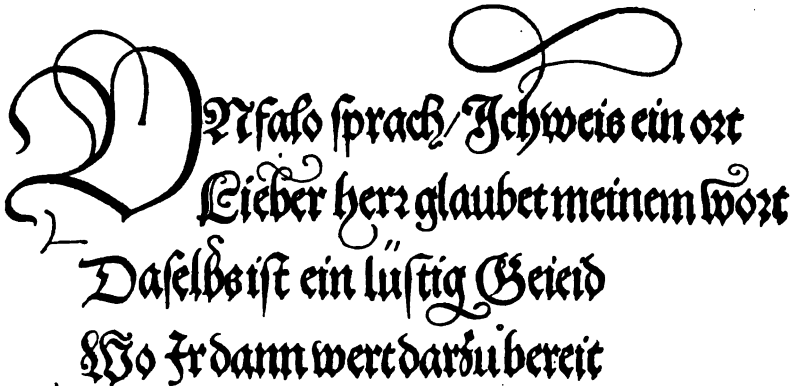 VNfalo sprach/ Ich weis ein ort
Lieber herr glaubet meinem wort
Daselbs ist ein lüstig Geieid
Wo Ir dann wert darzu bereit